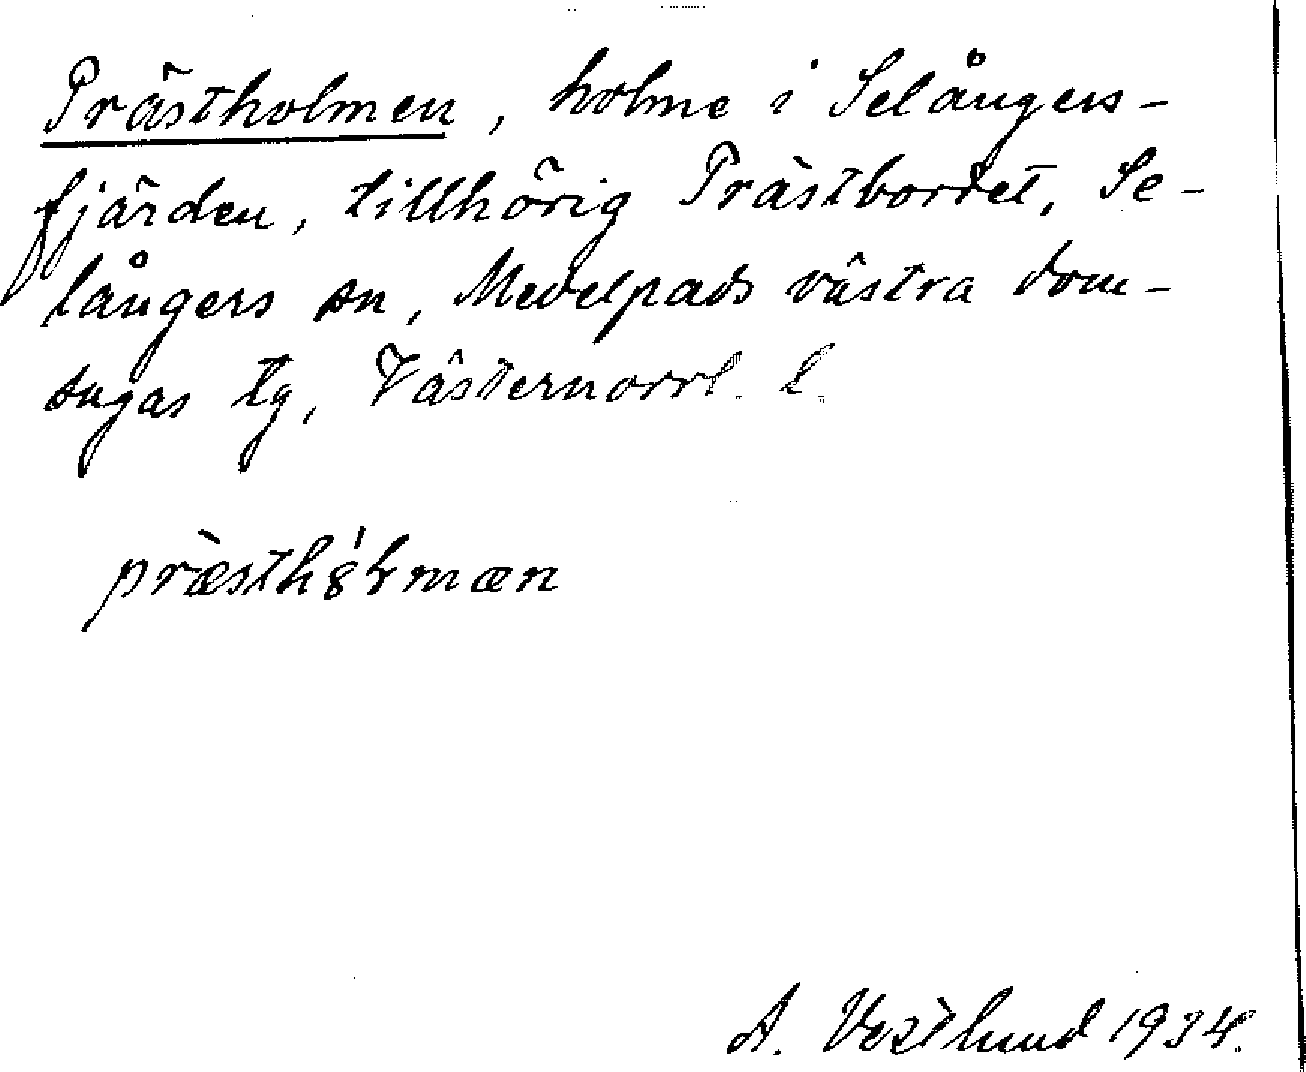 Prästholmen, holme i Selångers-
fjärden, tillhörig Prästbordet, Se-
långers sn, Medelpads västra dom-
sagas tg, Västernorrl. l.
præsthólmæn
A. Vestlund 1934.